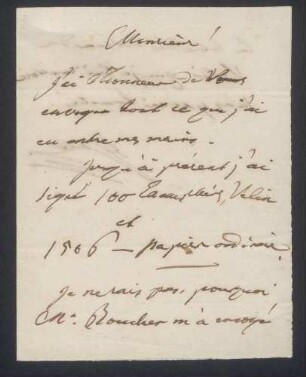 Monsieur!
J'ai l'honneur de Vous
envoyer tout ce que j'ai
eu entre mes mains.
jusqu'à présent j'ai
signé 100 Velin
et
1506 — papier ordinaire.
je ne sais pas, pourquoi
Mr. Boucher m'a envoyé